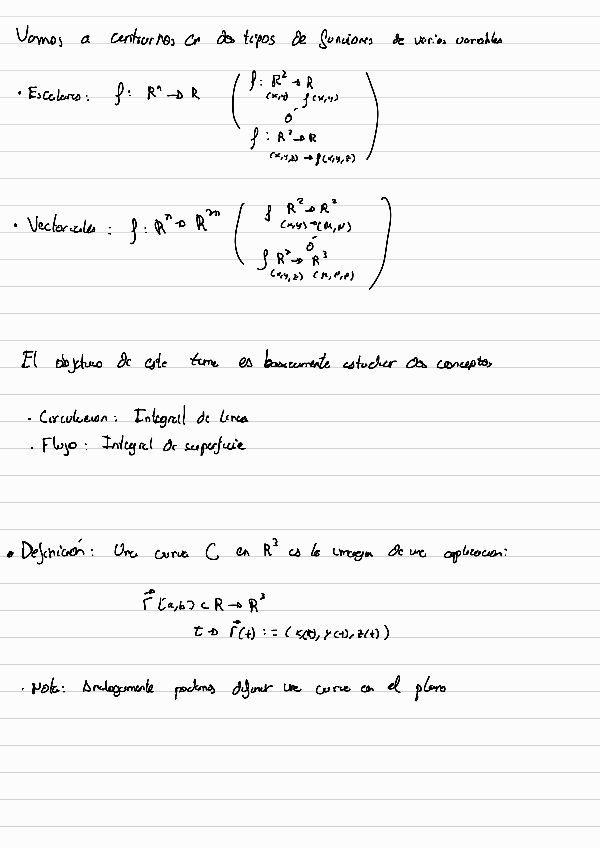 Vamos a centrarnos en dos tipos de funciones de varias variables
• Escalares: f: Rⁿ → R ( f: R² → R
(x,y) f(x,y)
ó
f: R³ → R
(x,y,z) → f(x,y,z) )
• Vectoriales: f: Rⁿ → Rᵐ ( f R² → R²
(x,y) → (M,N)
ó
f R³ → R³
(x,y,z) (M,N,P) )
El objetivo de este tema es basicamente estudiar dos conceptos
• Circulacion: Integral de linea
• Flujo: Integral de superficie
• Definición: Una curva C en R³ es la imagen de una aplicacion:
r⃗ [a,b] ⊂ R → R³
t → r⃗(t) := (x(t), y(t), z(t))
• Nota: Analogamente podemos definir una curva en el plano